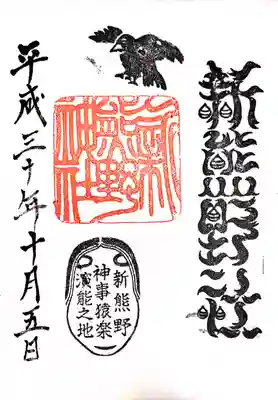 新熊野神社
新熊野神社
新熊野
神事猿楽
演能之地
平成三十年十月五日